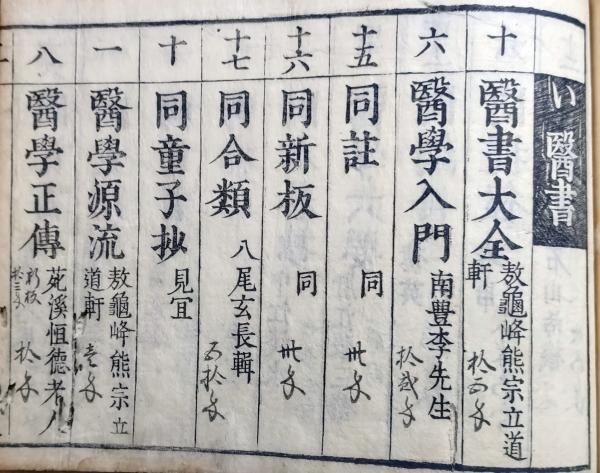 い 醫書
十 醫書大全 敖龜峰熊宗立道軒
六 醫學入門 南豊李先生
十五 同註 同 卅匁
十六 同新板 同 卅匁
十七 同合類 八尾玄長輯 五拾匁
十 同童子抄 見宜
一 醫學源流 敖龜峰熊宗立道軒 壱匁
八 醫學正傳 苑溪恒德老人 拾匁